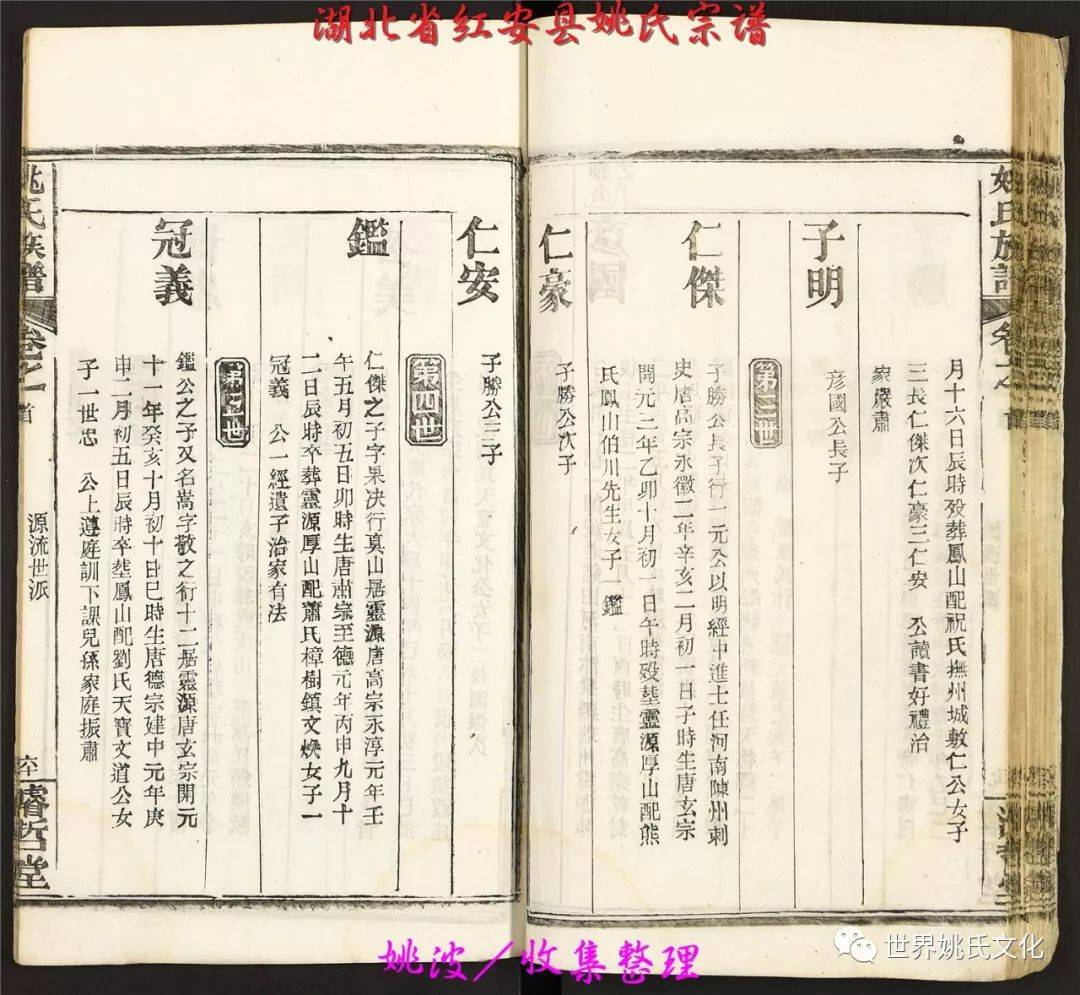 湖北省红安县姚氏宗谱
月十六日辰時歿葬鳳山配祝氏撫州城敷仁公女子
三長仁傑次仁豪三仁安　公讀書好禮治
家嚴肅
子明
彦國公長子
第三世
仁傑
子勝公長子行一元公以明經中進士任河南陳州刺
史唐高宗永徽二年辛亥二月初一日子時生唐玄宗
開元三年乙卯十月初一日午時歿塟靈源厚山配熊
氏鳳山伯川先生女子一鑑
仁豪
子勝公次子
仁安
子勝公三子
第四世
鑑
仁傑之子字果决行真山居靈源唐高宗永淳元年壬
午五月初五日卯時生唐肅宗至德元年丙申九月十
二日辰時卒葬靈源厚山配蕭氏樟樹鎮文焕女子一
冠義　公一經遺子治家有法
第五世
冠義
鑑公之子又名嵩字敬之行十二居靈源唐玄宗開元
十一年癸亥十月初十日巳時生唐德宗建中元年庚
申二月初五日辰時卒塟鳳山配劉氏天寶文道公女
子一世忠　公上遵庭訓下課兒孫家庭振肅
姚氏族譜
卷之一首
源流世派
六
濬哲堂
姚波／收集整理
世界姚氏文化